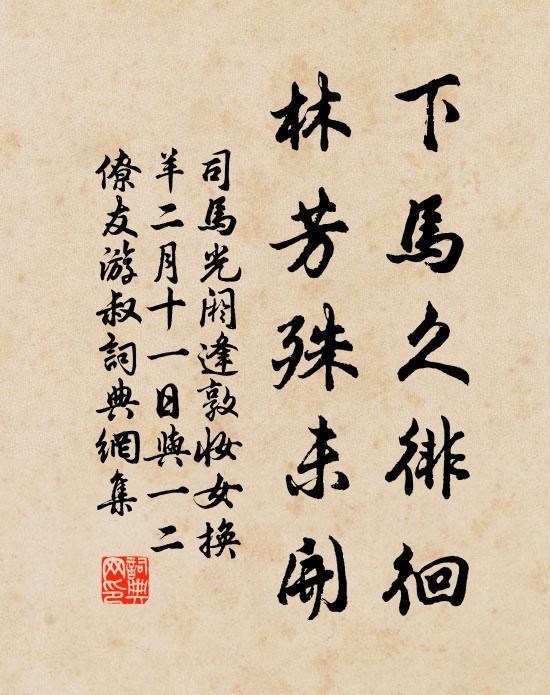 下馬久徘徊
林芳殊未開
司馬光閼逢敦妝女換
羊二月十一日與一二
僚友游叔詞典網集
詞典网印